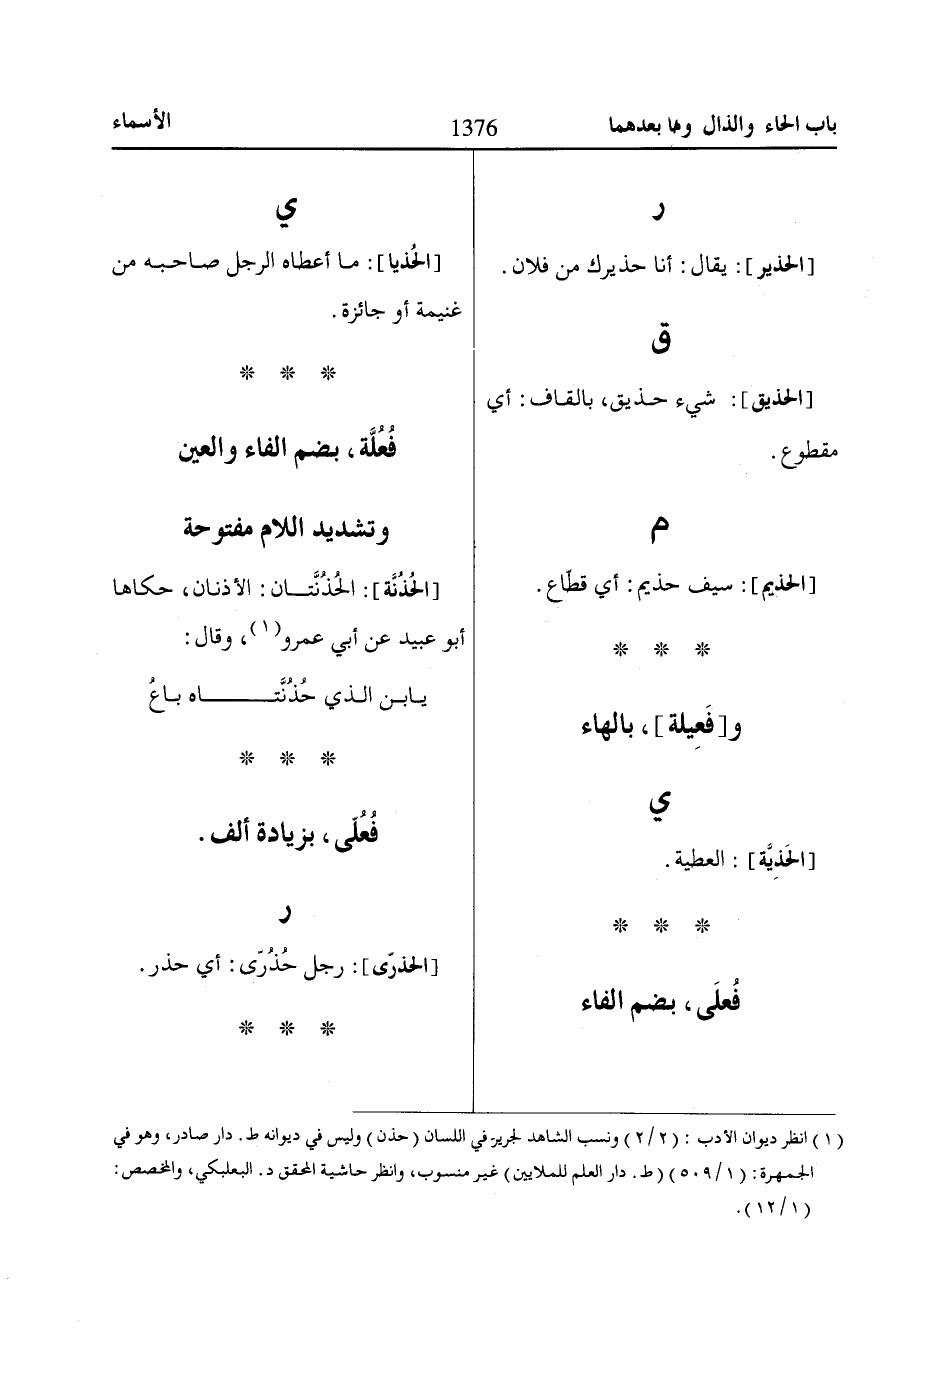 باب الحاء والذال وما بعدهما
1376
الأسماء
ر
[الحذير]: يقال: أنا حذيرك من فلان.
ق
[الحذيق]: شيء حذيق، بالقاف: أي
مقطوع.
م
[الحذيم]: سيف حذيم: أي قطّاع.
* * *
و[فَعِيلة]، بالهاء
ي
[الحَذِيَّة] : العطية.
* * *
فُعلَى، بضم الفاء
ي
[الحُذيا]: ما أعطاه الرجل صاحبه من
غنيمة أو جائزة.
* * *
فُعُلَّة، بضم الفاء والعين
وتشديد اللام مفتوحة
[الحُذُنَّة]: الحُذُنَّتان: الأذنان، حكاها
أبو عبيد عن أبي عمرو(١)، وقال:
يابن الذي حُذُنَّتاه باعُ
* * *
فُعُلّى، بزيادة ألف.
ر
[الحذرّى]: رجل حُذُرّى: أي حذر.
* * *
(١) انظر ديوان الأدب : (٢/٢) ونسب الشاهد لجرير في اللسان (حذن) وليس في ديوانه ط. دار صادر، وهو في
الجمهرة: (٥٠٩/١) (ط. دار العلم للملايين) غير منسوب، وانظر حاشية المحقق د. البعلبكي، والمخصص:
(١٢/١).